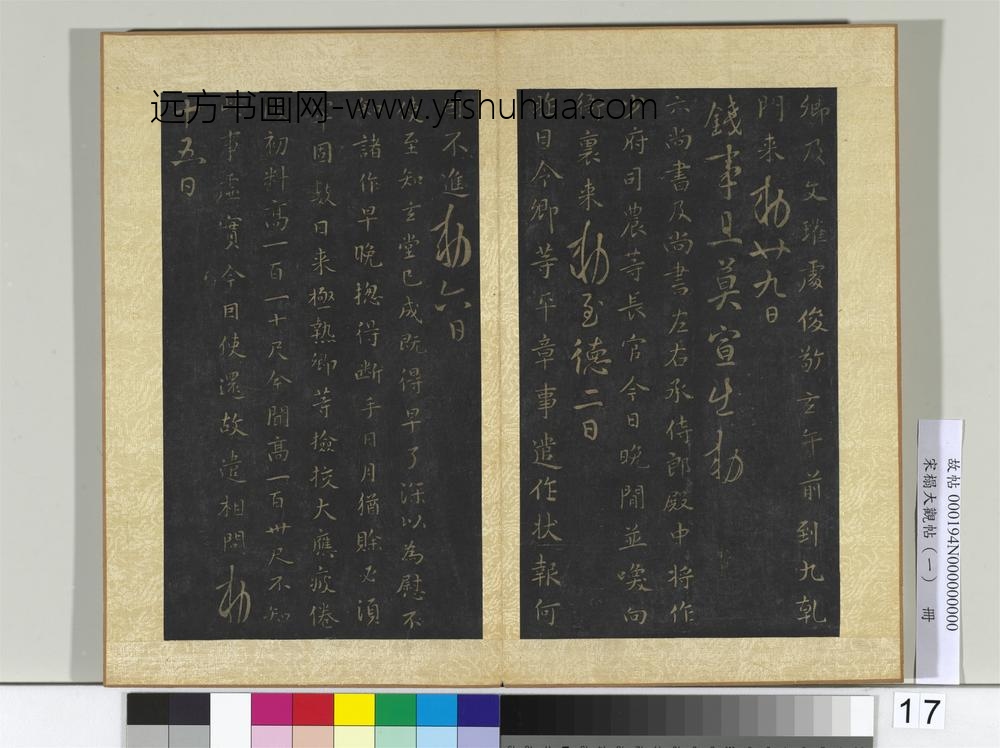 卿及文瓘處俊敬玄午前到九乾
門来敕廿九日
錢事且莫宣出敕
六尚書及尚書左右丞侍郎殿中将作
府司農等長官今日晩間並喚向
裏来敕至德二日
昨日令卿等平章事遣作状報何
不進敕六日
至知玄堂已成既得早了深以為慰不
諸作早晩揔得断手日月猶賖必須
固数日来極熱卿等檢校大應疲倦
初料高一百一十尺今聞高一百卅尺不知
事虛實今因使還故遣相問敕
十五日
远方书画网-www.yfshuhua.com
故帖 000194N000000000
宋榻大觀帖（一） 冊
17